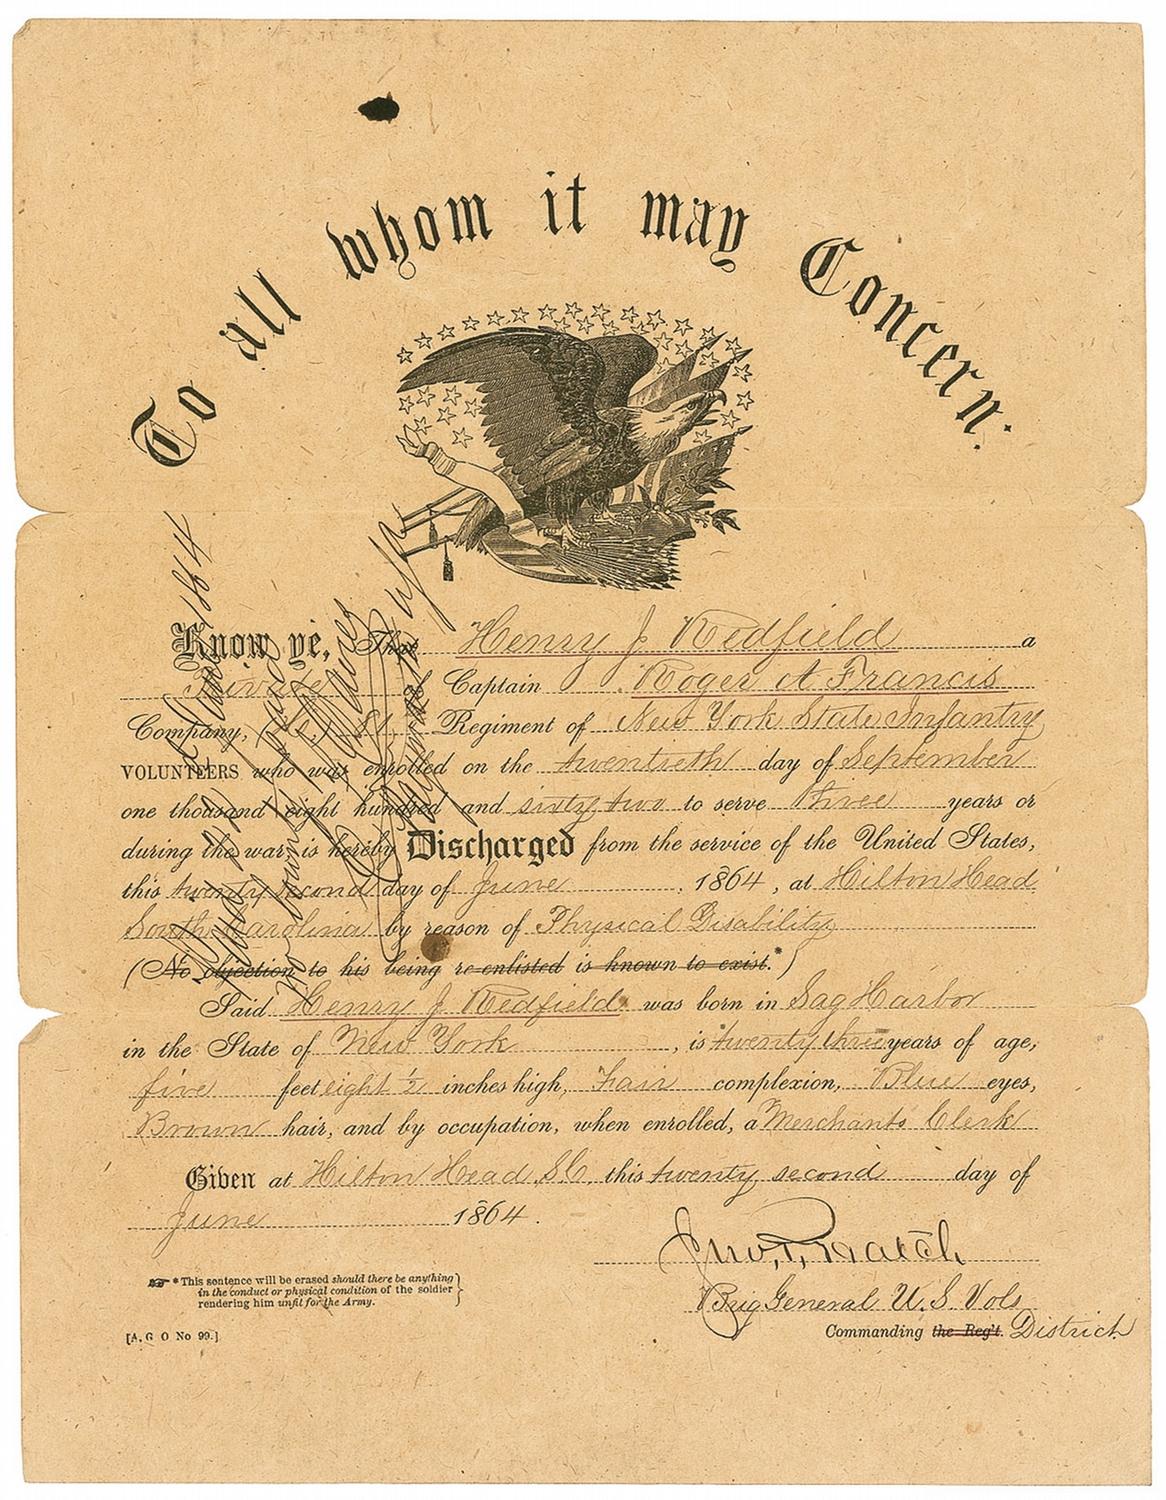 To all whom it may Concern:
Know ye, That Henry J Redfield a
Private of Captain Roger A Francis
Company, 81 Regiment of New York State Infantry
VOLUNTEERS who was enrolled on the twentieth day of September
one thousand eight hundred and sixty two to serve three years or
during the war, is hereby Discharged from the service of the United States,
this twenty second day of June 1864, at Hilton Head
South Carolina by reason of Physical Disability
(No objection to his being re-enlisted is known to exist.*)
Said Henry J Redfield was born in Sag Harbor
in the State of New York, is twenty three years of age,
five feet eight ½ inches high, Fair complexion, Blue eyes,
Brown hair, and by occupation, when enrolled, a Merchants Clerk
Given at Hilton Head S.C. this twenty second day of
June 1864.
Brig General U.S. Vols
* This sentence will be erased should there be anything
in the conduct or physical condition of the soldier
rendering him unfit for the Army.
Commanding the Reg't. District
[A. G O No 99.]
1864
Paymaster